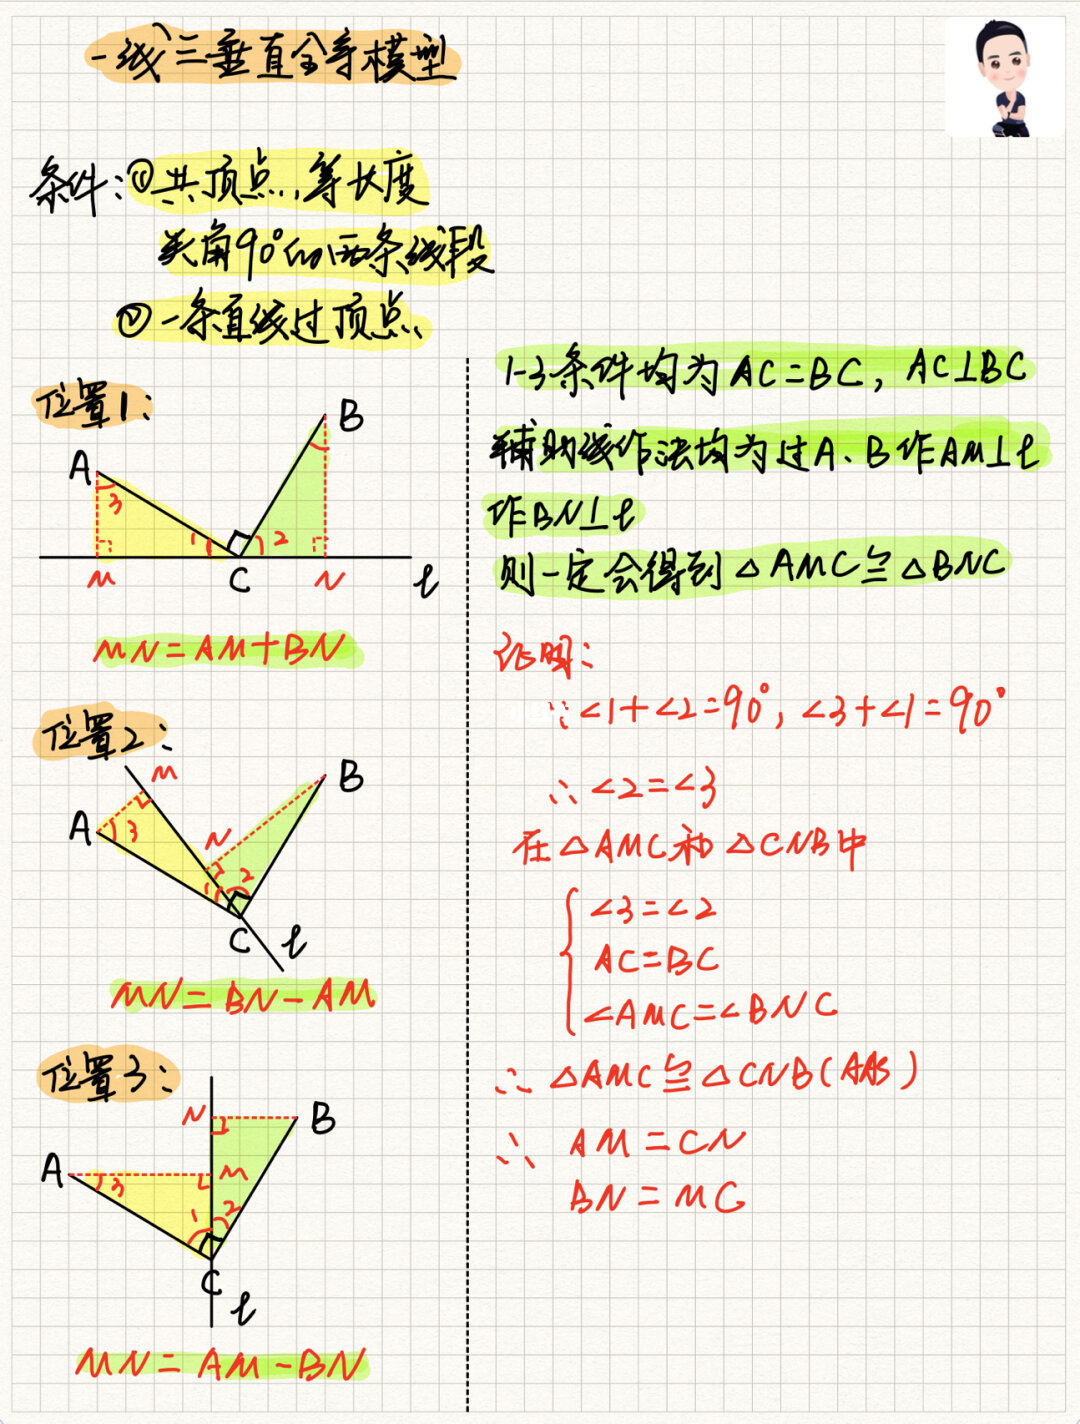 一线三垂直全等模型
条件:①共顶点,等长度
夹角90°的两条线段
②一条直线过顶点
位置1:
A
B
3
1
2
M
C
N
l
MN=AM+BN
位置2:
M
B
A
3
N
1
2
C
l
MN=BN-AM
位置3:
N
B
A
M
3
1
2
C
l
MN=AM-BN
1-3条件均为AC=BC,AC⊥BC
辅助线作法均为过A、B作AM⊥l
作BN⊥l
则一定会得到△AMC≌△BNC
证明:
∵∠1+∠2=90°,∠3+∠1=90°
∴∠2=∠3
在△AMC和△CNB中
∠3=∠2
AC=BC
∠AMC=∠BNC
∴△AMC≌△CNB(AAS)
∴AM=CN
BN=MC